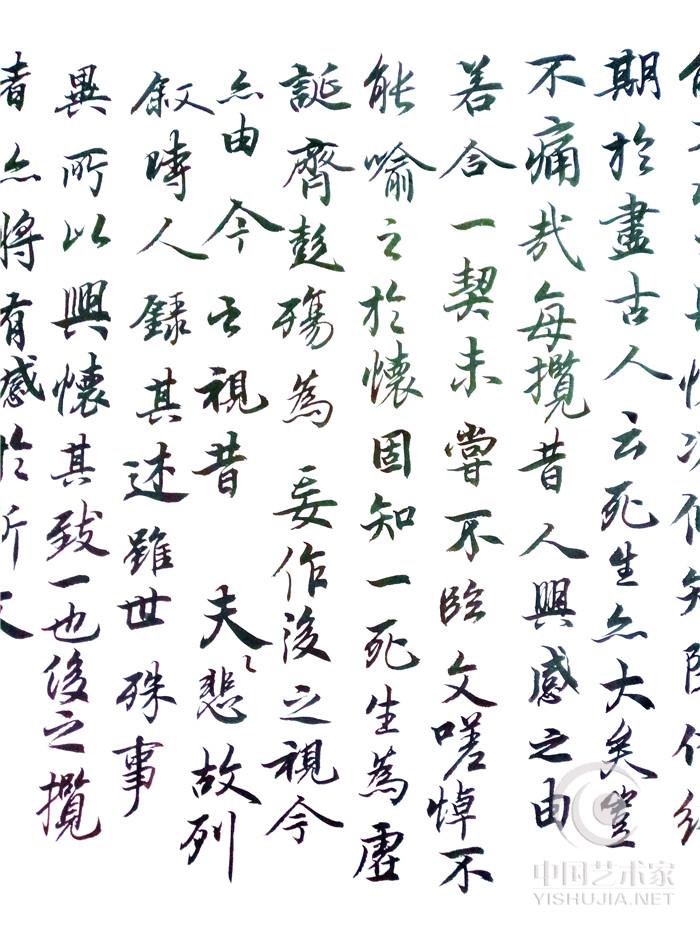 期於盡古人云死生亦大矣豈
不痛哉每攬昔人興感之由
若合一契未嘗不臨文嗟悼不
能喻之於懷固知一死生為虛
誕齊彭殤為妄作後之視今
亦由今之視昔夫悲故列
叙時人錄其述雖世殊事
異所以興懷其致一也後之攬
者亦將有感於斯文
中国艺术家
YISHUJIA.NET